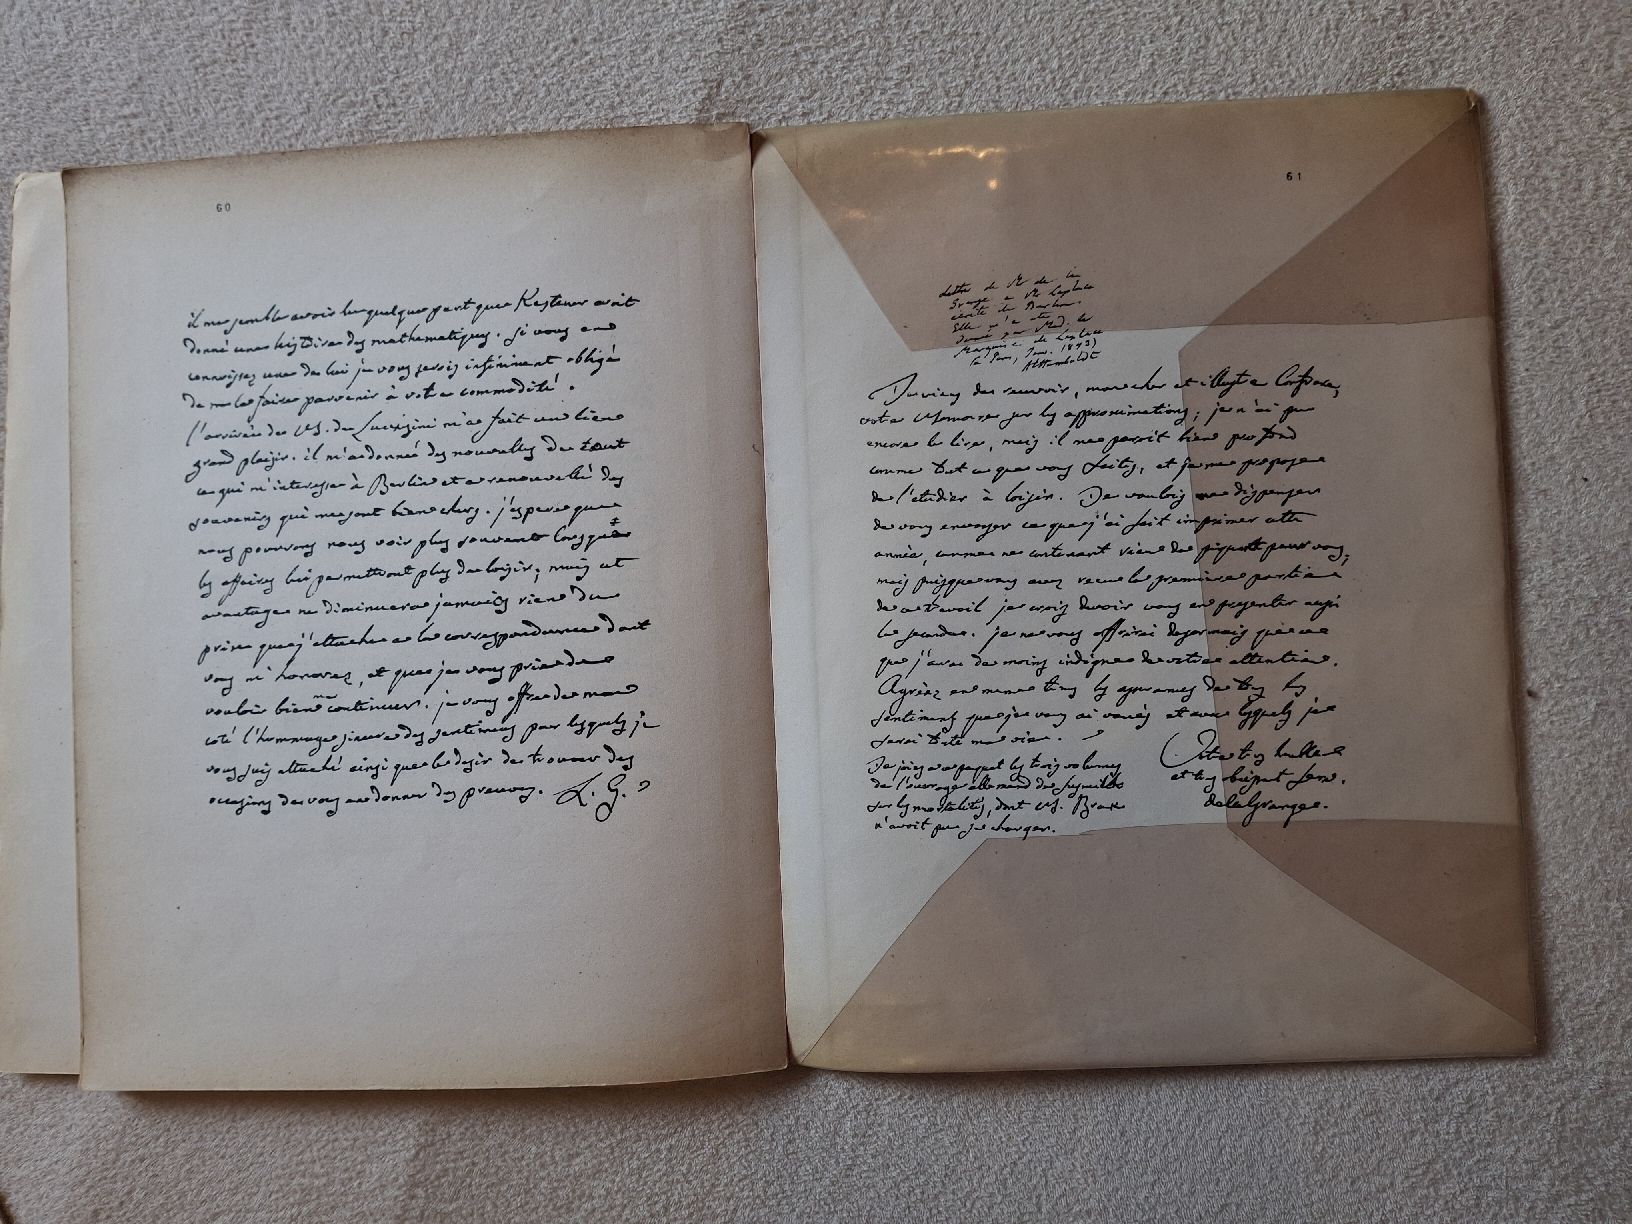 60
il me semble avoir lu quelque part que Kestener avoit
donné une histoire des mathematiques. si vous en
connoissez une de lui je vous serois infiniment obligé
de me la faire parvenir à votre commodité.
l'arrivée de M. de Luchesini m'a fait un bien
grand plaisir. il m'a donné des nouvelles de tout
ce qui m'interesse à Berlin et a renouvellé des
souvenirs qui me sont bien chers. j'espere que
nous pourrons nous voir plus souvent lorsque
les affaires lui permettront plus de loisir; mais cet
avantage ne diminuera jamais rien du
prix que j'attache a la correspondance dont
vous m'honorez, et que je vous prie de
vouloir bien me continuer. je vous offre de mon
coté l'hommage sincere des sentimens par lesquels je
vous suis attaché ainsi que le desir de trouver des
occasions de vous en donner des preuves. L. G.
61
Lettre de Mr de la
Grange a Mr Laplace
écrite de Berlin.
Elle m'a été
donnée par Mad. la
Marquise de Laplace
à Paris, Janv. 1843)
AlHumboldt
Je viens de recevoir, mon cher et illustre Confrere,
votre Memoire sur les approximations; je n'ai pu
encore le lire, mais il me paroit bien profond
comme tout ce que vous faites, et je me propose
de l'etudier à loisir. Je voulois me dispenser
de vous envoyer ce que j'ai fait imprimer cette
année, comme ne contenant rien de piquant pour vous,
mais puisque vous avez recu la premiere partie
de ce travail je crois devoir vous en presenter aussi
la seconde. je ne vous offrirai desormais que ce
que j'aurai de moins indigne de votre attention.
Agréez en meme tems les assurances de tous les
sentimens que je vous ai voués et avec lesquels je
serai toute ma vie.
Votre très humble
et très obeissant serv.
de la Grange.
Je joins au paquet les trois volumes
de l'ouvrage allemand de Susmilch
sur les mortalités, dont M. Brak
n'avoit pu se charger.